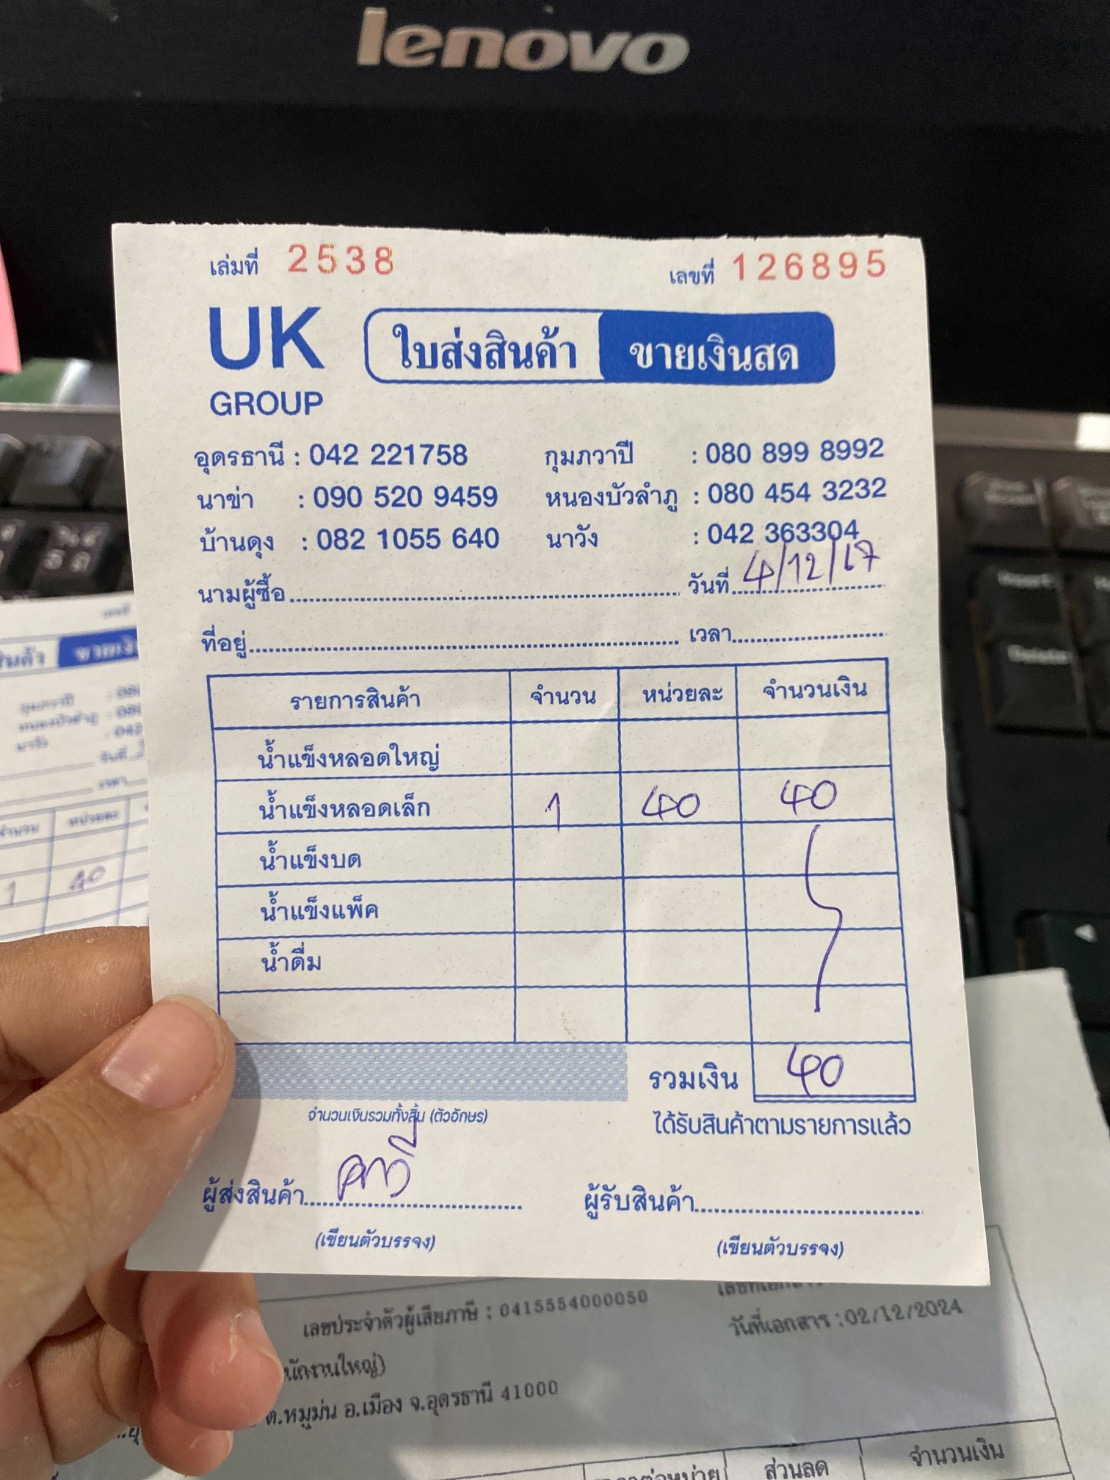 lenovo
เล่มที่ 2538 เลขที่ 126895
UK
GROUP
ใบส่งสินค้า ขายเงินสด
อุดรธานี : 042 221758 กุมภวาปี : 080 899 8992
นาข่า : 090 520 9459 หนองบัวลำภู : 080 454 3232
บ้านดุง : 082 1055 640 นาวัง : 042 363304
นามผู้ซื้อ วันที่ 4/12/67
ที่อยู่ เวลา
รายการสินค้า จำนวน หน่วยละ จำนวนเงิน
น้ำแข็งหลอดใหญ่
น้ำแข็งหลอดเล็ก 1 40 40
น้ำแข็งบด
น้ำแข็งแพ็ค
น้ำดื่ม
รวมเงิน 40
จำนวนเงินรวมทั้งสิ้น (ตัวอักษร) ได้รับสินค้าตามรายการแล้ว
ผู้ส่งสินค้า ผู้รับสินค้า
(เขียนตัวบรรจง) (เขียนตัวบรรจง)
เลขประจำตัวผู้เสียภาษี : 0415554000050
วันที่เอกสาร : 02/12/2024
ต.หมูม่น อ.เมือง จ.อุดรธานี 41000
ส่วนลด จำนวนเงิน
จำนวน หน่วยละ
1 40
Delete